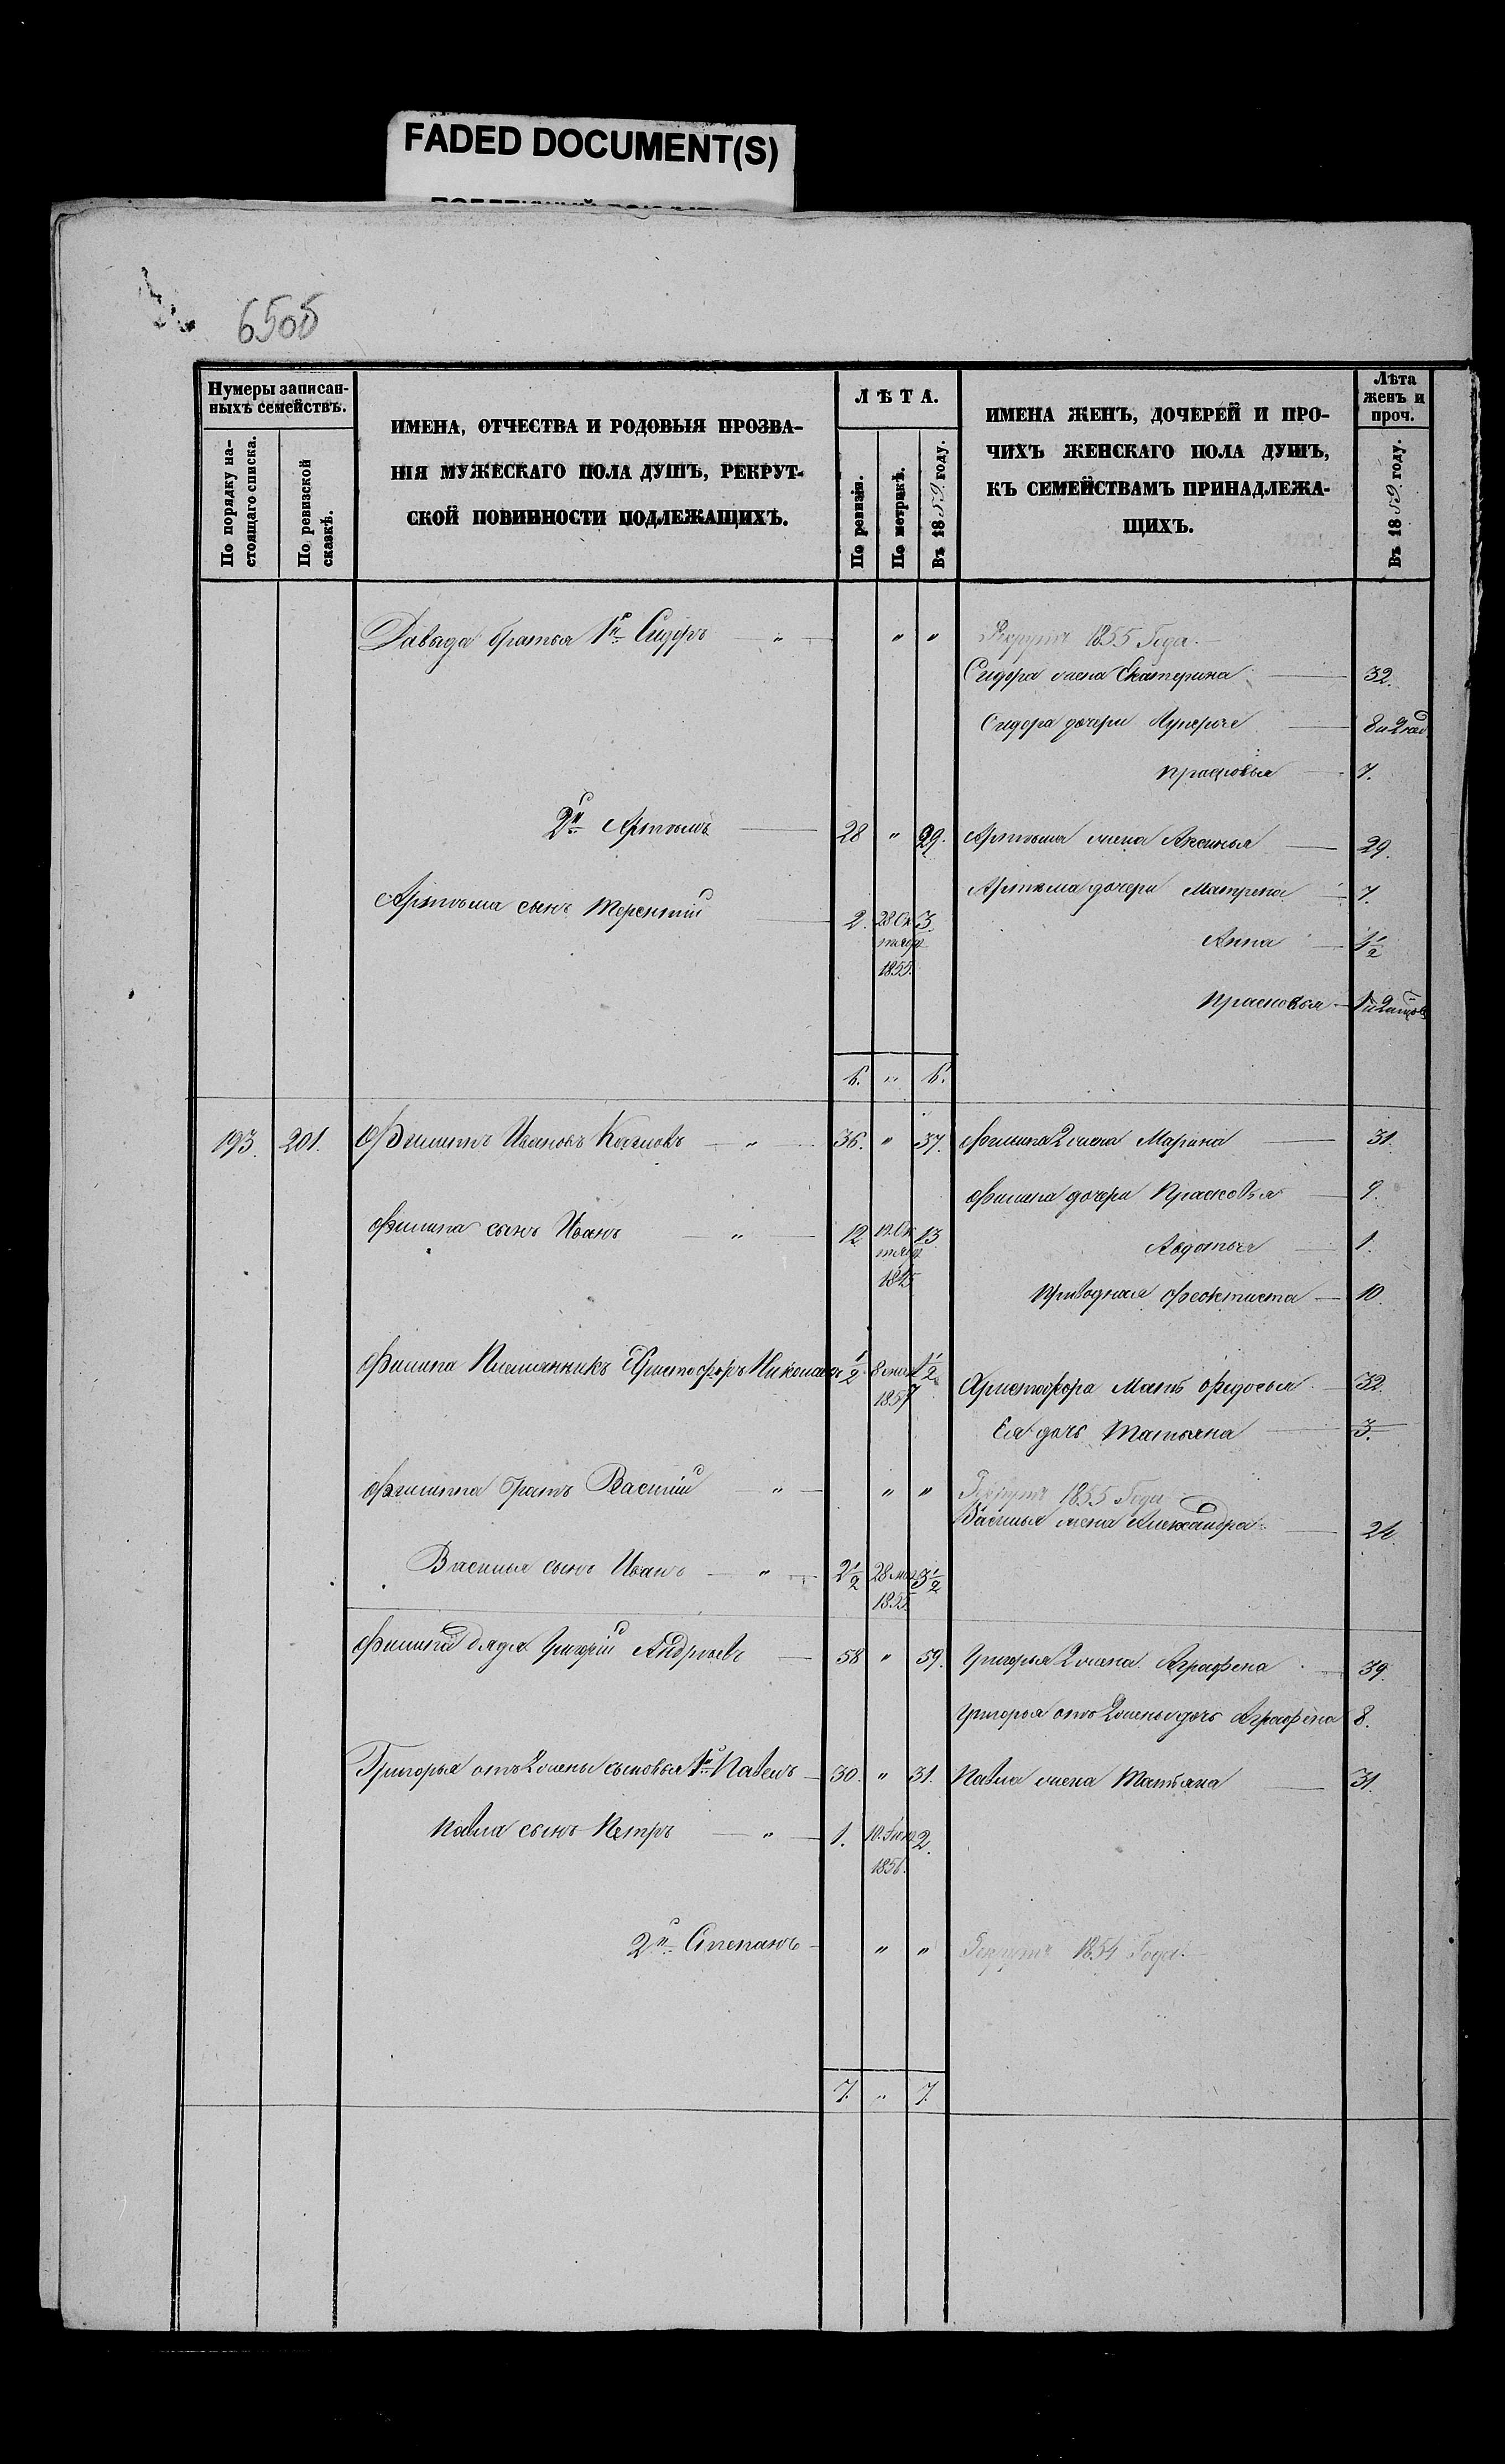 FADED DOCUMENT(S)
6505
Нумеры записан-
ныхъ семействъ.
По порядку на-
стоящаго списка.
По ревизской
сказкѣ.
ИМЕНА, ОТЧЕСТВА И РОДОВЫЯ ПРОЗВА-
НІЯ МУЖЕСКАГО ПОЛА ДУШЪ, РЕКРУТ-
СКОЙ ПОВИННОСТИ ПОДЛЕЖАЩИХЪ.
ЛѢТА.
По ревизіи.
По метрикѣ.
Въ 1859 году.
ИМЕНА ЖЕНЪ, ДОЧЕРЕЙ И ПРО-
ЧИХЪ ЖЕНСКАГО ПОЛА ДУШЪ,
КЪ СЕМЕЙСТВАМЪ ПРИНАДЛЕЖА-
ЩИХЪ.
Лѣта
женъ и
проч.
Въ 1859 году.
Давыда братья 1й Сидоръ — " — " " Рекрутъ 1855 Года.
Сидора жена Екатерина — 32.
Сидора дочери Лукерья — 8 и
Прасковья — 7.
2й Артемъ — 28 " 29. Артема жена Аксинья — 29.
Артема дочери Матрена 7.
Артема сынъ Терентій — 2. 28 Ок 3.
тября
1855.
Анна — 1½
Прасковья —
6. " 6.
193. 201. Филиппъ Ивановъ Козловъ — " — 36. " 37. Филипа 2 жена Марина — 31
Филипа дочери Прасковья — 9.
Филипа сынъ Иванъ — " — 12 Ок 13
тября
1845
Авдотья — 1.
Приводная Феоктиста — 10.
Филипа Племянникъ Христофоръ Николаевъ ½ 8 мая 1½
1857
Христофора Мать Федосья — 32.
Ея дочь Татьяна — 3.
Филиппа братъ Василій — " — " " Рекрутъ 1855 Года
Василья жена Александра — 24
Василья сынъ Иванъ — " — 2½ 28 3½
1855
Филипа дядя Григорій Андреевъ — 58 " 59. Григорья 2 жена Аграфена — 39.
Григорья отъ 2 жены дочь Аграфена 8.
Григорья отъ жены сыновья 1й Павелъ — 30. " 31. Павла жена Татьяна — 31.
Павла сынъ Петръ — " — 1. 10. 2.
1856.
2й Степанъ — " " Рекрутъ 1854 Года. —
7. " 7.